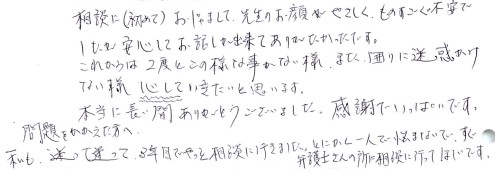 相談に(初めて)おじゃまして、先生のお顔がやさしく、ものすごく不安で
したが安心してお話しが出来てありがたかったです。
これからは2度とこの様な事がない様、また、囲りに迷惑かけ
ない様心していきたいと思います。
本当に長い間ありがとうございました。感謝でいっぱいです。
問題をかかえた方へ
私も、迷って迷って、3年目でやっと相談に行きました。とにかく一人で悩まないで、すぐ
弁護士さんの所に相談に行ってほしいです。